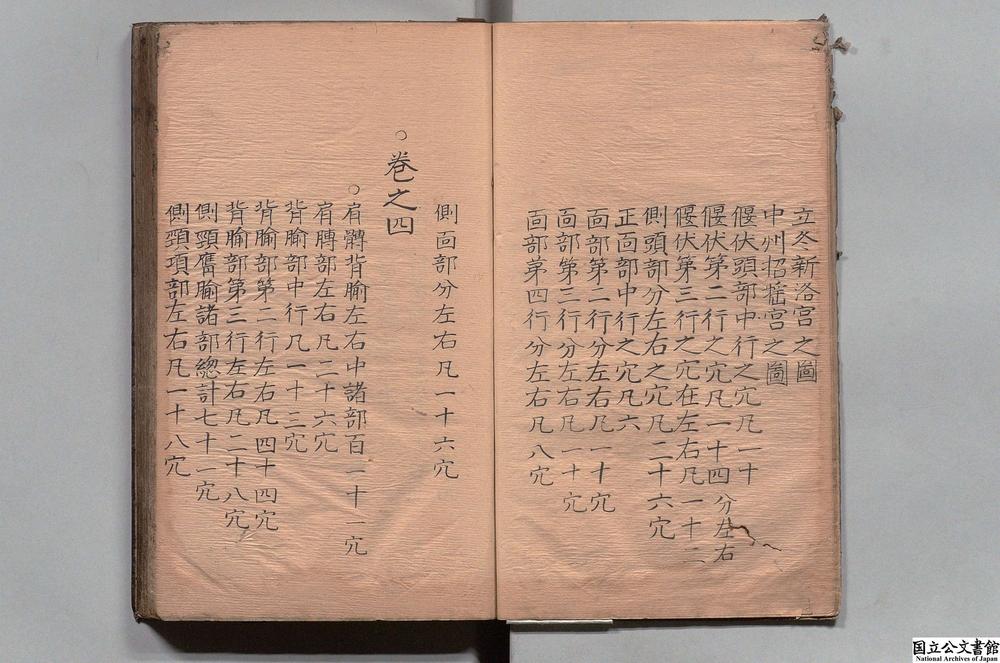 立冬新洛宮之圖
中州招搖宮之圖
偃伏頭部中行之穴凡一十
偃伏第二行之穴凡一十四分左右
偃伏第三行之穴在左右凡一十二
側頭部分左右之穴凡二十六穴
正面部中行之穴凡六
面部第二行分左右凡一十穴
面部第三行分左右凡一十穴
面部第四行分左右凡八穴
側面部分左右凡一十六穴
○卷之四
○肩髆背腧左右中諸部百一十一穴
肩髆部左右凡二十六穴
背腧部中行凡一十三穴
背腧部第二行左右凡四十四穴
背腧部第三行左右凡二十八穴
側頸膺腧諸部總計七十一穴
側頸項部左右凡一十八穴
国立公文書館
National Archives of Japan